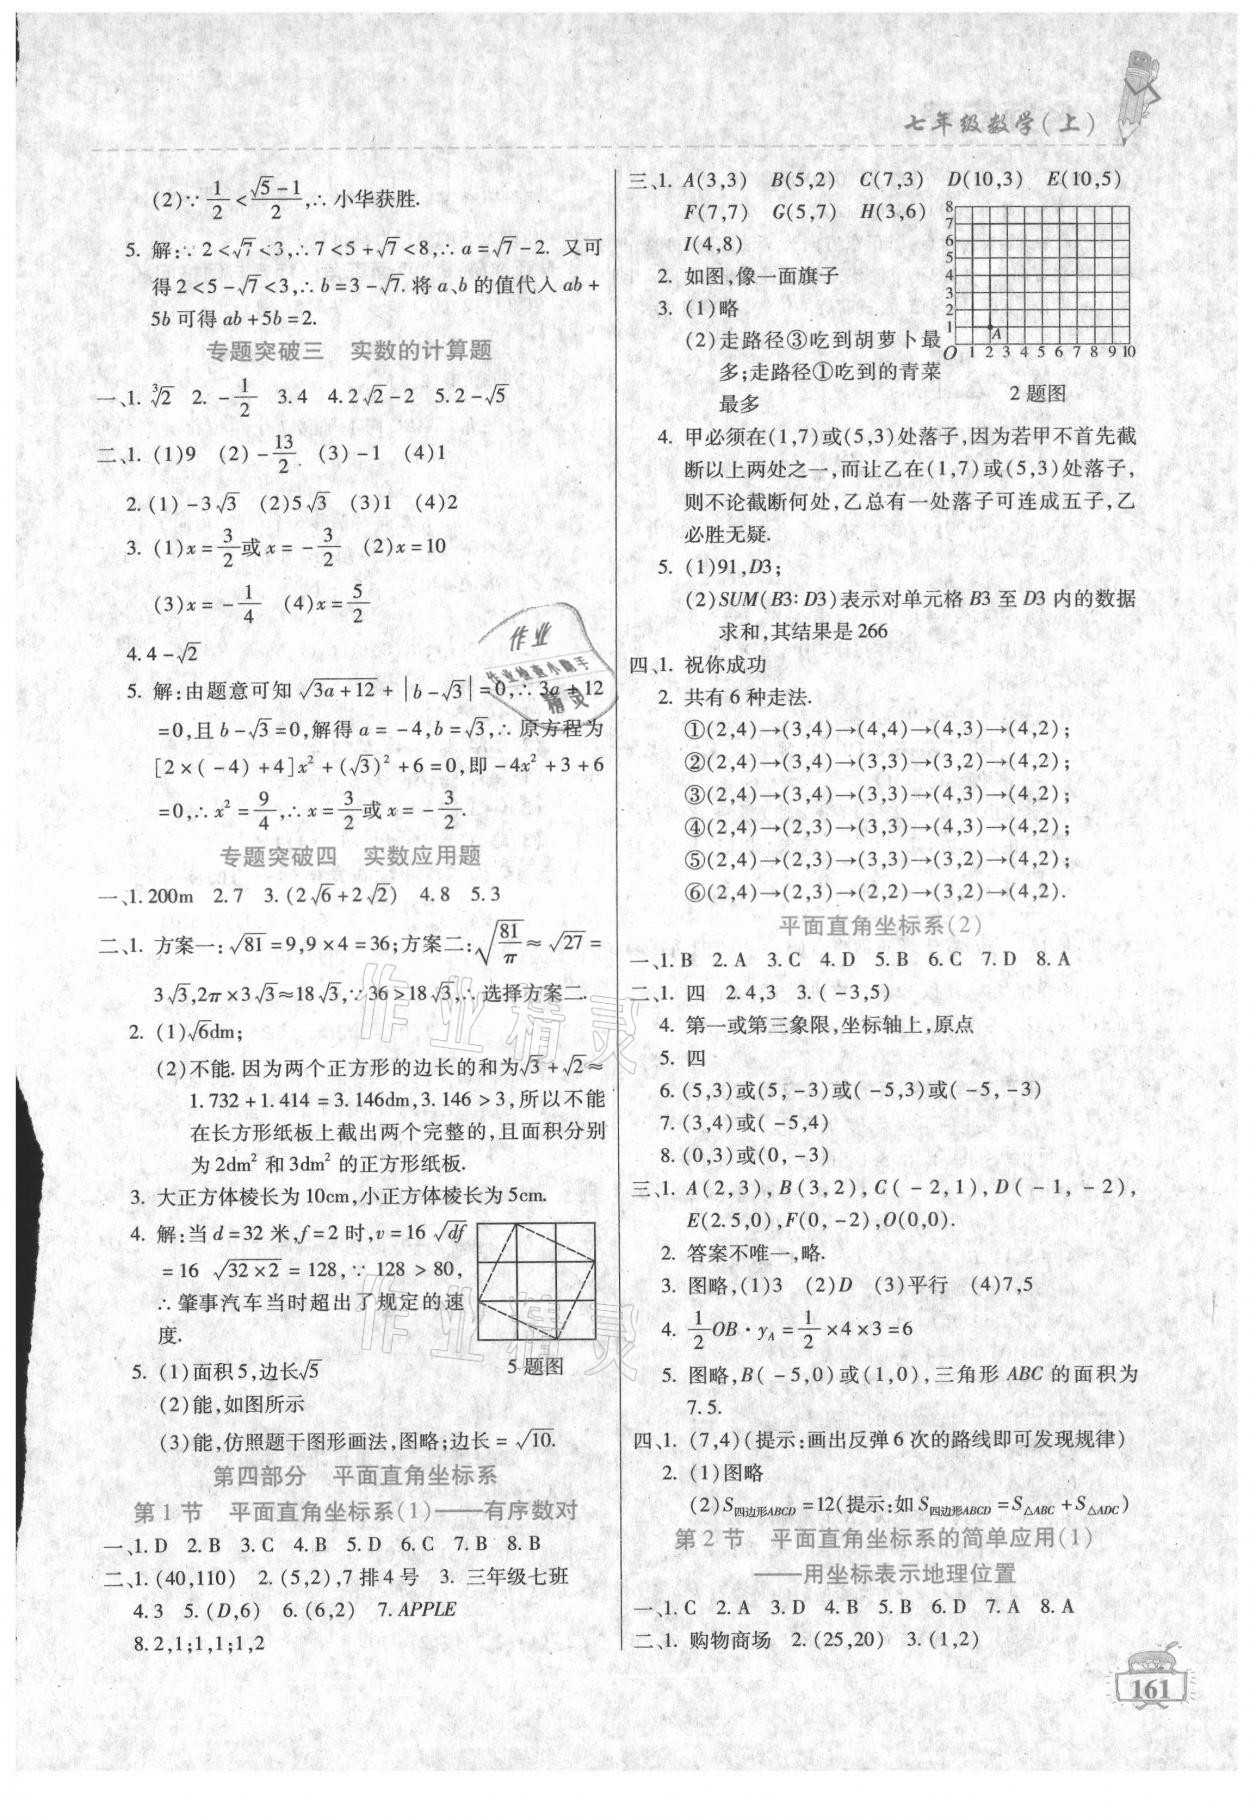 七年级数学(上)
(2)∵1/2<(√5-1)/2,∴小华获胜.
5. 解:∵2<√7<3,∴7<5+√7<8,∴a=√7-2. 又可
得2<5-√7<3,∴b=3-√7.将a、b的值代入ab+
5b可得ab+5b=2.
专题突破三 实数的计算题
一、1. ∛2 2. -1/2 3.4 4.2√2-2 5.2-√5
二、1. (1)9 (2)-13/2 (3)-1 (4)1
2. (1)-3√3 (2)5√3 (3)1 (4)2
3. (1)x=3/2或x=-3/2 (2)x=10
(3)x=-1/4 (4)x=5/2
4.4-√2
5. 解:由题意可知√(3a+12)+|b-√3|=0,∴3a+12
=0,且b-√3=0,解得a=-4,b=√3,∴原方程为
[2×(-4)+4]x²+(√3)²+6=0,即-4x²+3+6
=0,∴x²=9/4,∴x=3/2或x=-3/2.
专题突破四 实数应用题
一、1.200m 2.7 3.(2√6+2√2) 4.8 5.3
二、1. 方案一:√81=9,9×4=36;方案二:√(81/π)≈√27=
3√3,2π×3√3≈18√3,∵36>18√3,∴选择方案二.
2. (1)√6dm;
(2)不能.因为两个正方形的边长的和为√3+√2≈
1.732+1.414=3.146dm,3.146>3,所以不能
在长方形纸板上截出两个完整的,且面积分别
为2dm²和3dm²的正方形纸板.
3. 大正方体棱长为10cm,小正方体棱长为5cm.
4. 解:当d=32米,f=2时,v=16√(df)
=16√(32×2)=128,∵128>80,
∴肇事汽车当时超出了规定的速
度.
5题图
5. (1)面积5,边长√5
(2)能,如图所示
(3)能,仿照题干图形画法,图略;边长=√10.
第四部分 平面直角坐标系
第1节 平面直角坐标系(1)——有序数对
一、1. D 2. B 3. C 4. B 5. D 6. C 7. B 8. B
二、1. (40,110) 2. (5,2),7排4号 3. 三年级七班
4.3 5. (D,6) 6. (6,2) 7. APPLE
8.2,1;1,1;1,2
三、1. A(3,3) B(5,2) C(7,3) D(10,3) E(10,5)
F(7,7) G(5,7) H(3,6)
I(4,8)
2. 如图,像一面旗子
3. (1)略
(2)走路径③吃到胡萝卜最
多;走路径①吃到的青菜
最多
8
7
6
5
4
3
2
1
A
O 1 2 3 4 5 6 7 8 9 10
2题图
4. 甲必须在(1,7)或(5,3)处落子,因为若甲不首先截
断以上两处之一,而让乙在(1,7)或(5,3)处落子,
则不论截断何处,乙总有一处落子可连成五子,乙
必胜无疑.
5. (1)91,D3;
(2)SUM(B3:D3)表示对单元格B3至D3内的数据
求和,其结果是266
四、1. 祝你成功
2. 共有6种走法.
①(2,4)→(3,4)→(4,4)→(4,3)→(4,2);
②(2,4)→(3,4)→(3,3)→(3,2)→(4,2);
③(2,4)→(3,4)→(3,3)→(4,3)→(4,2);
④(2,4)→(2,3)→(3,3)→(4,3)→(4,2);
⑤(2,4)→(2,3)→(3,3)→(3,2)→(4,2);
⑥(2,4)→(2,3)→(2,2)→(3,2)→(4,2).
平面直角坐标系(2)
一、1. B 2. A 3. C 4. D 5. B 6. C 7. D 8. A
二、1. 四 2.4,3 3. (-3,5)
4. 第一或第三象限,坐标轴上,原点
5. 四
6. (5,3)或(5,-3)或(-5,3)或(-5,-3)
7. (3,4)或(-5,4)
8. (0,3)或(0,-3)
三、1. A(2,3),B(3,2),C(-2,1),D(-1,-2),
E(2.5,0),F(0,-2),O(0,0).
2. 答案不唯一,略.
3. 图略,(1)3 (2)D (3)平行 (4)7,5
4. 1/2OB·y_A=1/2×4×3=6
5. 图略,B(-5,0)或(1,0),三角形ABC的面积为
7.5.
四、1. (7,4)(提示:画出反弹6次的路线即可发现规律)
2. (1)图略
(2)S四边形ABCD=12(提示:如S四边形ABCD=S△ABC+S△ADC)
第2节 平面直角坐标系的简单应用(1)
——用坐标表示地理位置
一、1. C 2. A 3. D 4. B 5. B 6. D 7. A 8. A
二、1. 购物商场 2. (25,20) 3. (1,2)
161
作业
作业检查小助手
精灵
作业精灵
作业精灵